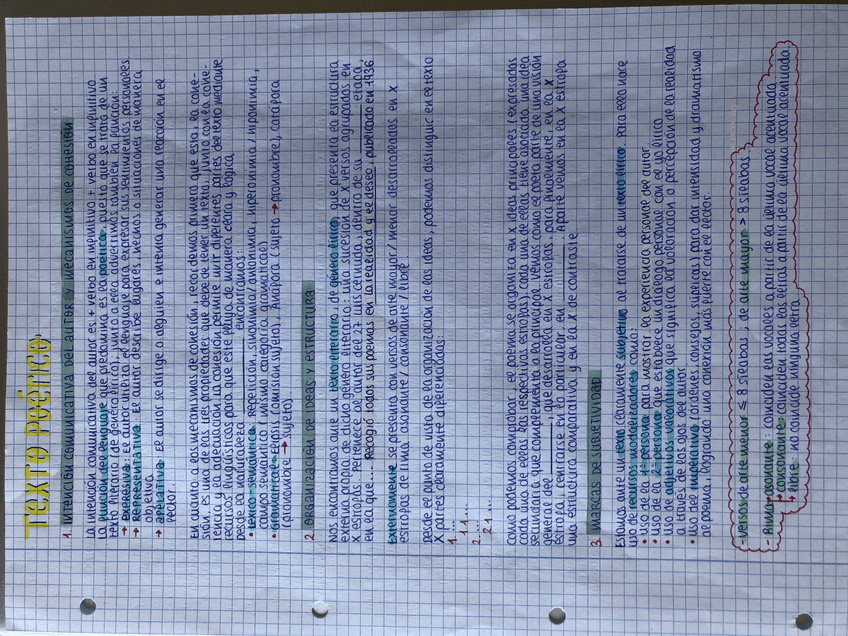 TEXTO POÉTICO
1. INTENCIÓN COMUNICATIVA DEL AUTOR Y MECANISMOS DE COHESIÓN
La intención comunicativa del autor es: + verbo en infinitivo + verbo en infinitivo
La función del lenguaje que predomina es la poética, puesto que se trata de un
texto literario, de género lírico. Junto a ella advertimos también la función:
→ EXPRESIVA: El autor utiliza el lenguaje para expresar sus sentimientos personales.
→ REPRESENTATIVA: El autor describe lugares, hechos o situaciones de manera
objetiva
→ APELATIVA: El autor se dirige a alguien e intenta generar una reacción en el
lector.
En cuanto a los mecanismos de cohesión, recordemos primero que esta, la cohe-
sión, es una de las tres propiedades que debe de tener un texto, junto con la cohe-
rencia y la adecuación. La cohesión, permite unir diferentes partes del texto mediante
recursos lingüísticos para que este fluya de manera clara y lógica
De naturaleza encontramos:
• LÉXICO-SEMÁNTICA: Repetición, sinonimia/antonimia, hiperonimia/hiponimia,
campo semántico (misma categoría gramatical)
• GRAMATICAL: Elipsis (omisión sujeto), Anáfora (sujeto → pronombre), catáfora
(pronombre → sujeto)
2. ORGANIZACIÓN DE IDEAS Y ESTRUCTURA
Nos encontramos ante un texto literario, de género lírico, que presenta la estructura
externa propia de dicho género literario: una sucesión de X versos agrupados en
X estrofas. Pertenece al autor del 27 Luis Cernuda, dentro de su ______ etapa,
en la que... Recogió todos sus poemas en La realidad y el deseo, publicado en 1936
Externamente se presenta con versos de arte mayor/menor desarrollados en X
estrofas de rima asonante/consonante/libre.
Desde el punto de vista de la organización de las ideas, podemos distinguir en el texto
X partes claramente diferenciadas:
1. ...
1.1 ...
2. ...
2.1 ...
Como podemos comprobar, el poema se organiza en X ideas principales (expresadas
cada una de ellas en las respectivas estrofas). Cada una de ellas tiene asociada una idea
secundaria que complementa a la principal. Vemos como el poeta parte de una visión
general del , que desarrolla en X estrofas, para finalmente, en la X
estrofa centrarse en lo particular, en . Aparte vemos en la X estrofa
una estructura comparativa y en la X de contraste
3. MARCAS DE SUBJETIVIDAD
Estamos ante un texto claramente subjetivo al tratarse de un texto lírico. Para ello hace
uso de recursos modalizadores como:
• uso de la 1ª persona al mostrar la experiencia personal del autor.
• uso de la 2ª persona que establece un diálogo personal con el yo lírico
• uso de adjetivos valorativos que significa la valoración o percepción de la realidad
a través de los ojos del autor.
• uso del imperativo (órdenes, consejos, súplicas) para dar intensidad y dramatismo
al poema, logrando una conexión más fuerte con el lector.
- Versos de arte menor ≤ 8 sílabas; de arte mayor > 8 sílabas
- Rima → asonante: coinciden las vocales a partir de la última vocal acentuada
→ consonante: coinciden todas las letras a partir de la última vocal acentuada
→ libre: no coincide ninguna letra